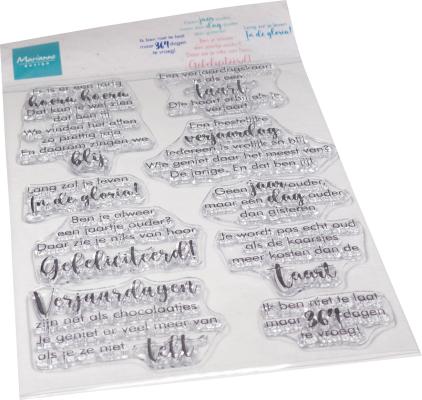 Marianne
DESIGN
Ik ben niet te laat
maar 364 dagen
te vroeg!
Geen jaar ouder
maar een dag ouder
dan gisteren
Lang zal ze leven
In de gloria!
Gefeliciteerd!
Er is er een jarig
hoera hoera
Dat kun je wel zien
Dat ben jij!
We vinden het allen
zo prettig ja ja
En daarom zingen we
blij
Een verjaardagskaart
is als een
taart
Die hoort erbij als je
verjaart
Een feestelijke
verjaardag
Iedereen is vrolijk en blij
Wie geniet daar het meest van?
De jarige. En dat ben jij!
Lang zal ze leven
In de gloria!
Geen jaar ouder
maar een dag ouder
dan gisteren
Ben je alweer
een jaartje ouder?
Daar zie je niks van hoor
Gefeliciteerd!
Je wordt pas echt oud
als de kaarsjes
meer kosten dan de
taart
Verjaardagen
zijn net als chocolaatjes
Je geniet er veel meer van
als je ze niet
telt
Ik ben niet te laat
maar 364 dagen
te vroeg!